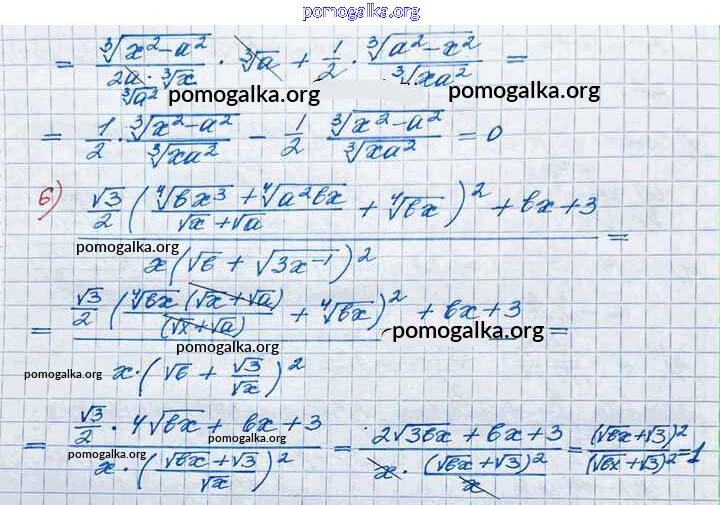 pomogalka.org
= ∛(x²−a²) / (2a·∛x) · ∛a + 1/2 · ∛(a²−x²) / ∛(xa²) =
∛a²
pomogalka.org pomogalka.org
= 1/2 · ∛(x²−a²) / ∛(xa²) − 1/2 ∛(x²−a²) / ∛(xa²) = 0
б) (√3/2 ((⁴√(bx³) + ⁴√(a²bx)) / (√x + √a) + ⁴√(bx))² + bx + 3) / (x(√b + √(3x⁻¹))²) =
pomogalka.org
= (√3/2 ((⁴√(bx) (√x + √a)) / (√x + √a) + ⁴√(bx))² + bx + 3) / (x·(√b + √3/√x)²) =
pomogalka.org
pomogalka.org
pomogalka.org
= (√3/2 · 4√(bx) + bx + 3) / (x·((√(bx) + √3)/√x)²) = (2√(3bx) + bx + 3) / (x·(√(bx) + √3)²/x) = (√(bx) + √3)² / (√(bx) + √3)² = 1
pomogalka.org
pomogalka.org